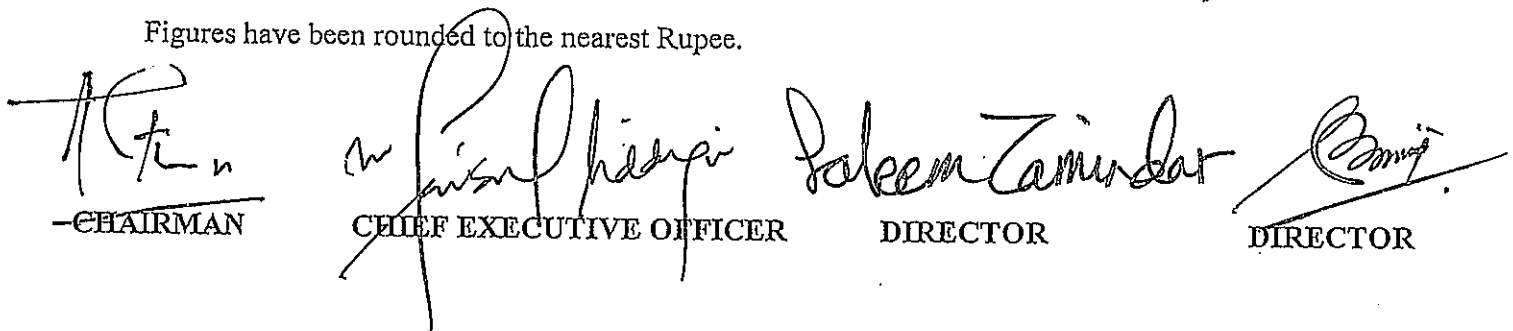 Figures have been rounded to the nearest Rupee.
Saleem Zamindar
CHAIRMAN CHIEF EXECUTIVE OFFICER DIRECTOR DIRECTOR